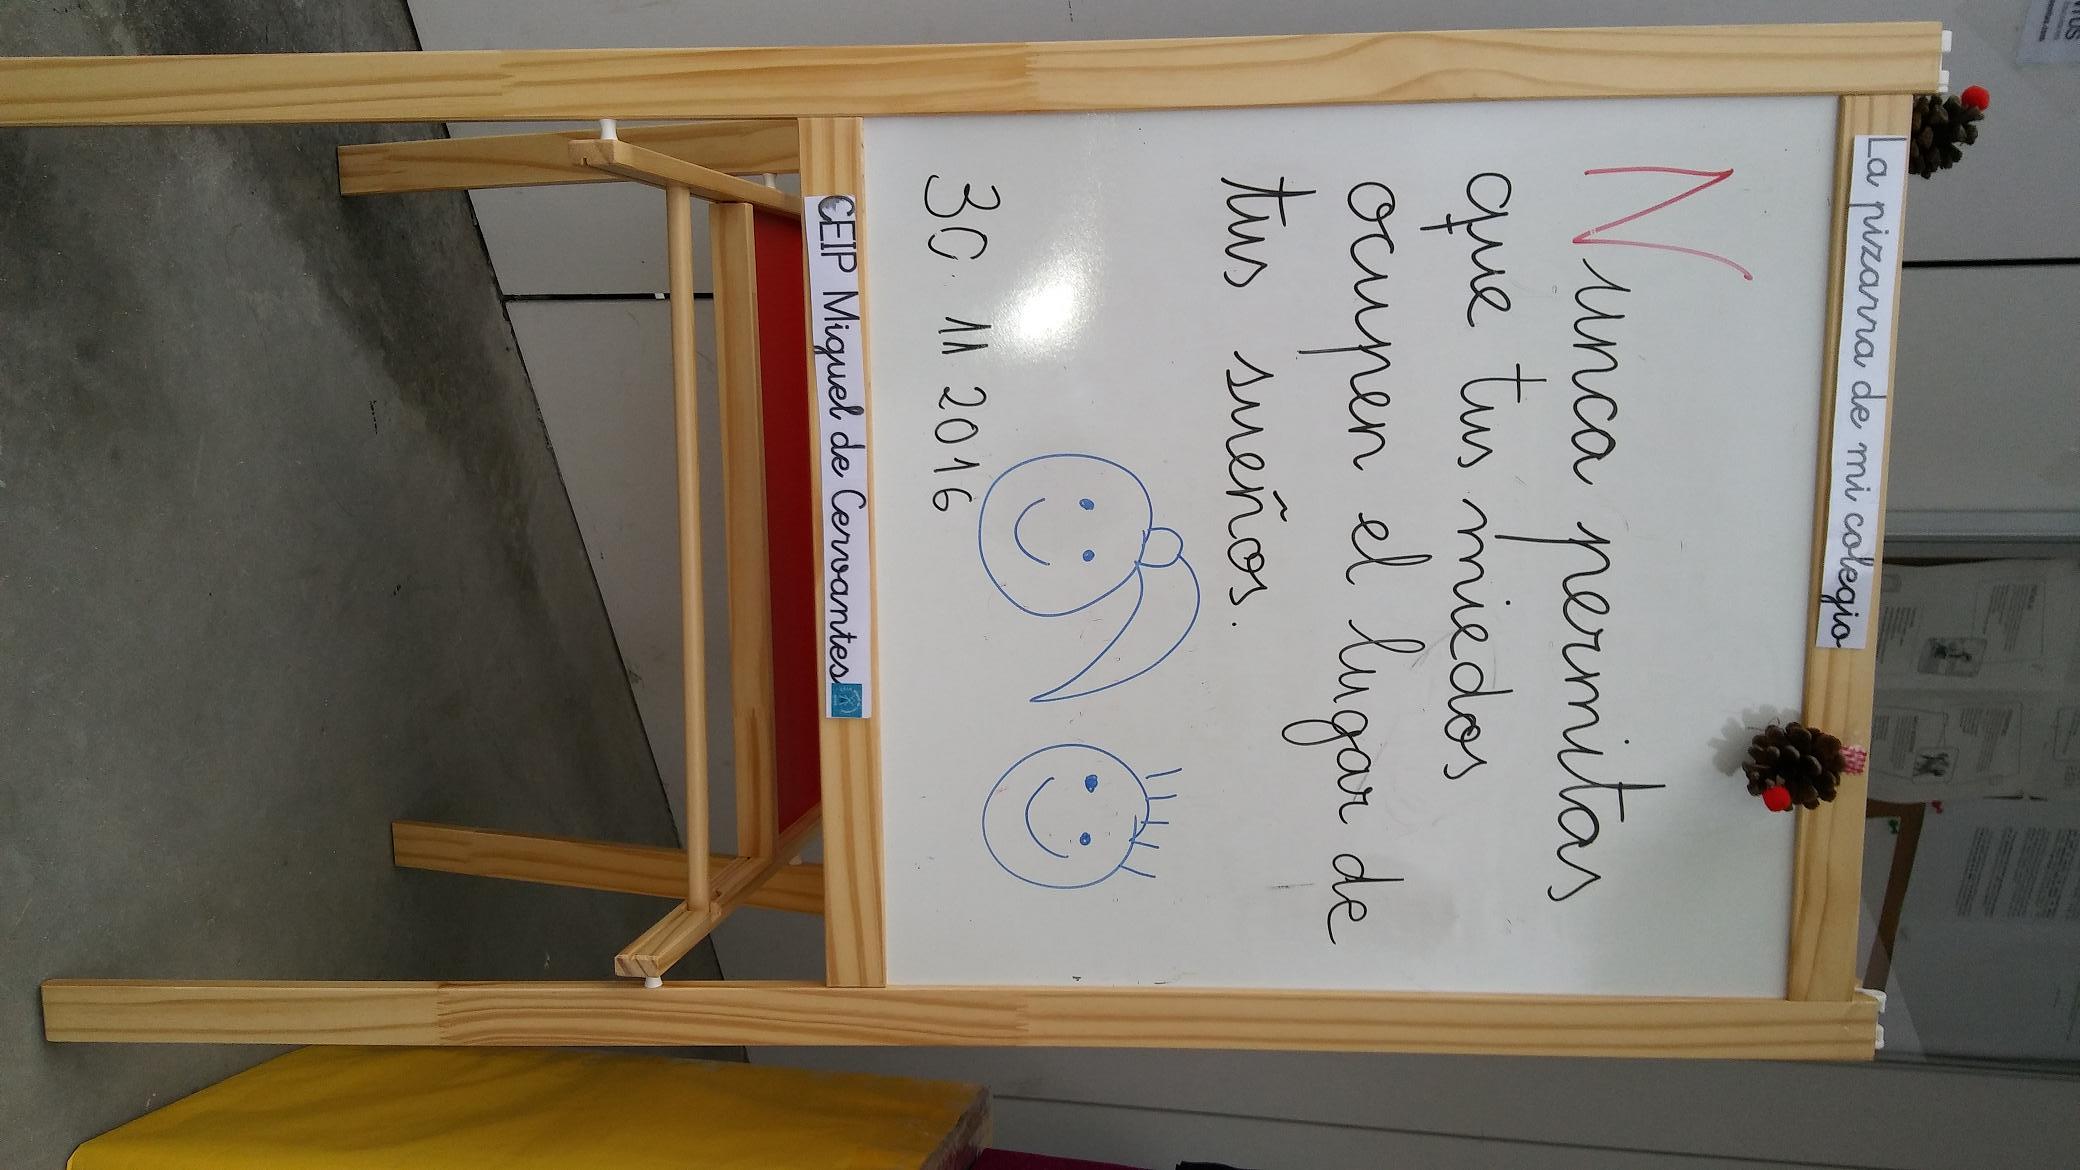 La pizarra de mi colegio
Nunca permitas
que tus miedos
ocupen el lugar de
tus sueños.
30 11 2016
CEIP Miguel de Cervantes